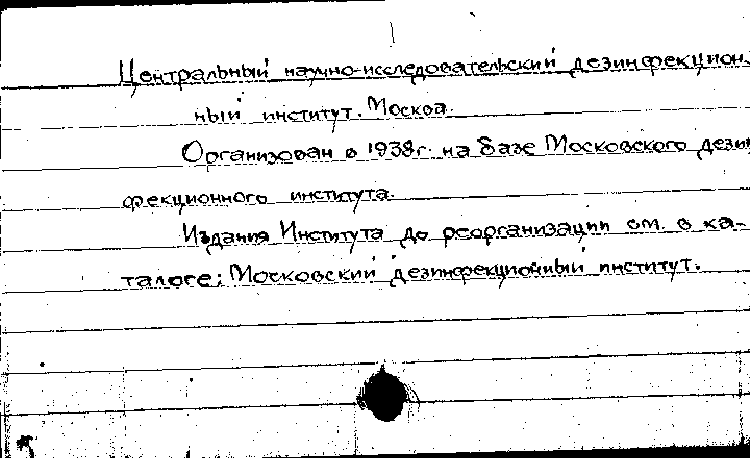 Центральный научно-исследовательский дезинфекцион-
ный институт. Москва.
Организован в 1938г. на базе Московского дезин
фекционного института.
Издания Института до реорганизации см. в ка-
талоге: Московский дезинфекционный институт.